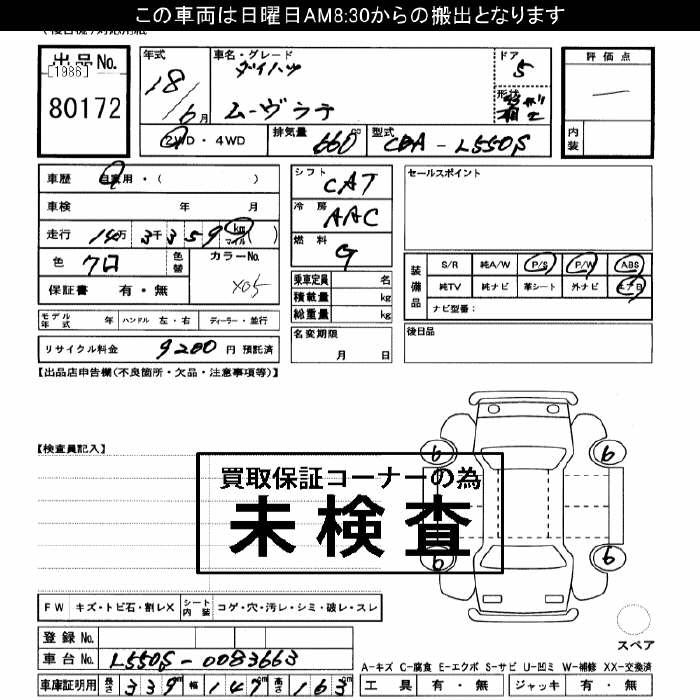 この車両は日曜日AM8:30からの搬出となります
出品No.
[1986]
80172
年式
18/6月
車名・グレード
ダイハツ
ムーヴラテ
ドア
5
形状
評価点
内装
2WD・4WD
排気量
660cc
型式
CBA-L550S
車歴
自家用・( )
車検 年 月
走行 14万3千359 km マイル ( )
色
クロ
色替
カラーNo.
X05
保証書 有・無
シフト
CAT
冷房
AAC
燃料
G
乗車定員 名
積載量 kg
総重量 kg
セールスポイント
装備品
S/R 純A/W P/S P/W ABS
純TV 純ナビ 革シート 外ナビ エアB
ナビ型番:
モデル年式 年 ハンドル 左・右 ディーラー・並行
名変期限
月 日
後日品
リサイクル料金 9200 円 預託済
【出品店申告欄(不良箇所・欠品・注意事項等)】
【検査員記入】
6
6
6
6
買取保証コーナーの為
未検査
FW キズ・トビ石・割レX シート内装 コゲ・穴・汚レ・シミ・破レ・スレ
登録No.
車台No. L550S-0083663
スペア
A-キズ C-腐食 E-エクボ S-サビ U-凹ミ W-補修 XX-交換済
車庫証明用 長さ 339cm 幅 147cm 高さ 163cm
工具 有・無 ジャッキ 有・無